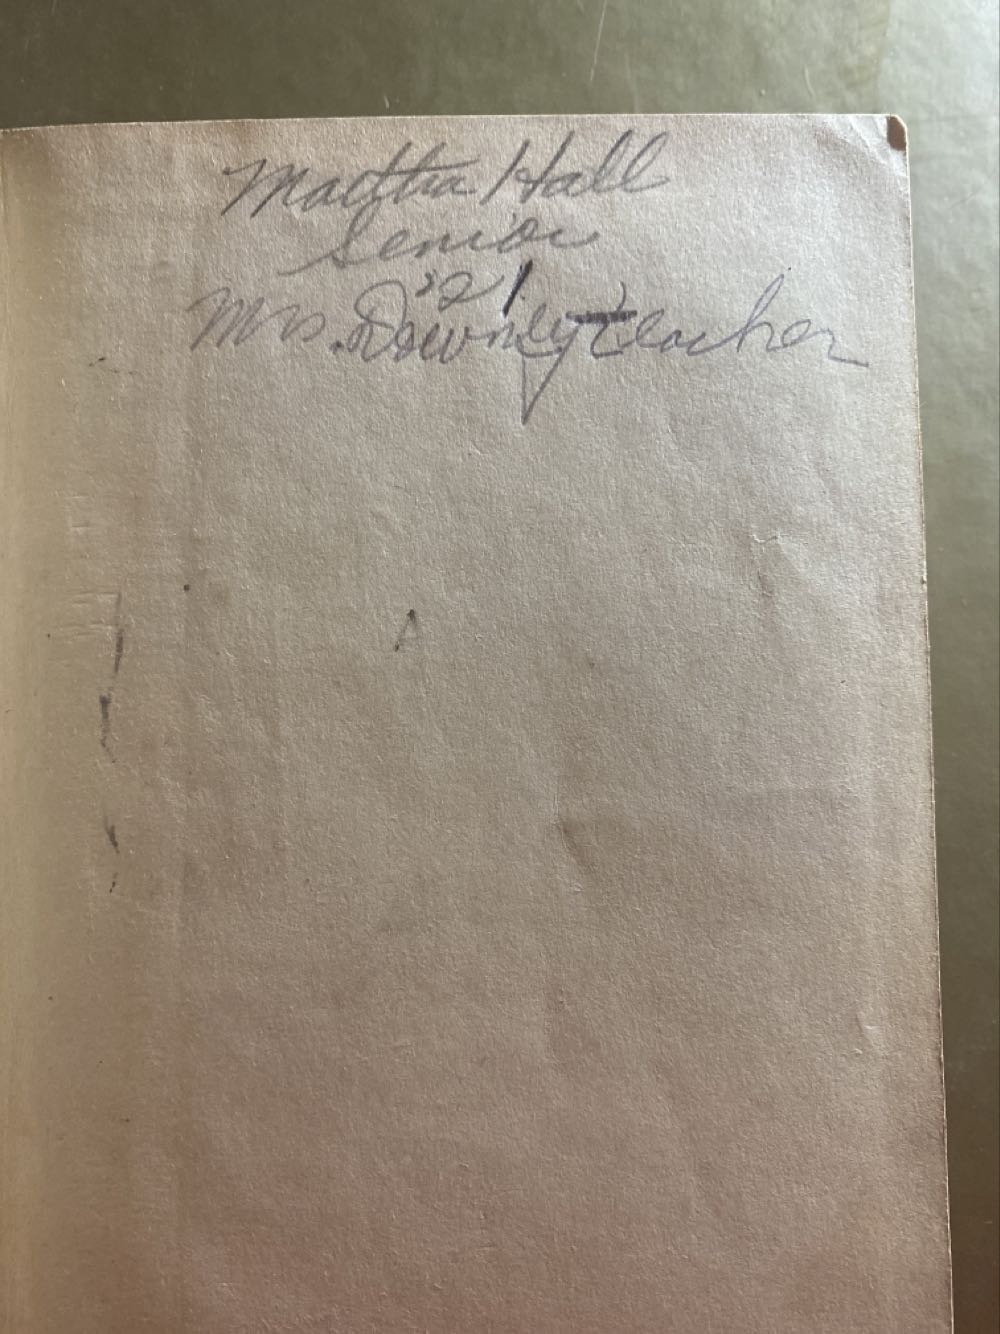 Martha Hall
Senior
'21
Mrs. Downey teacher